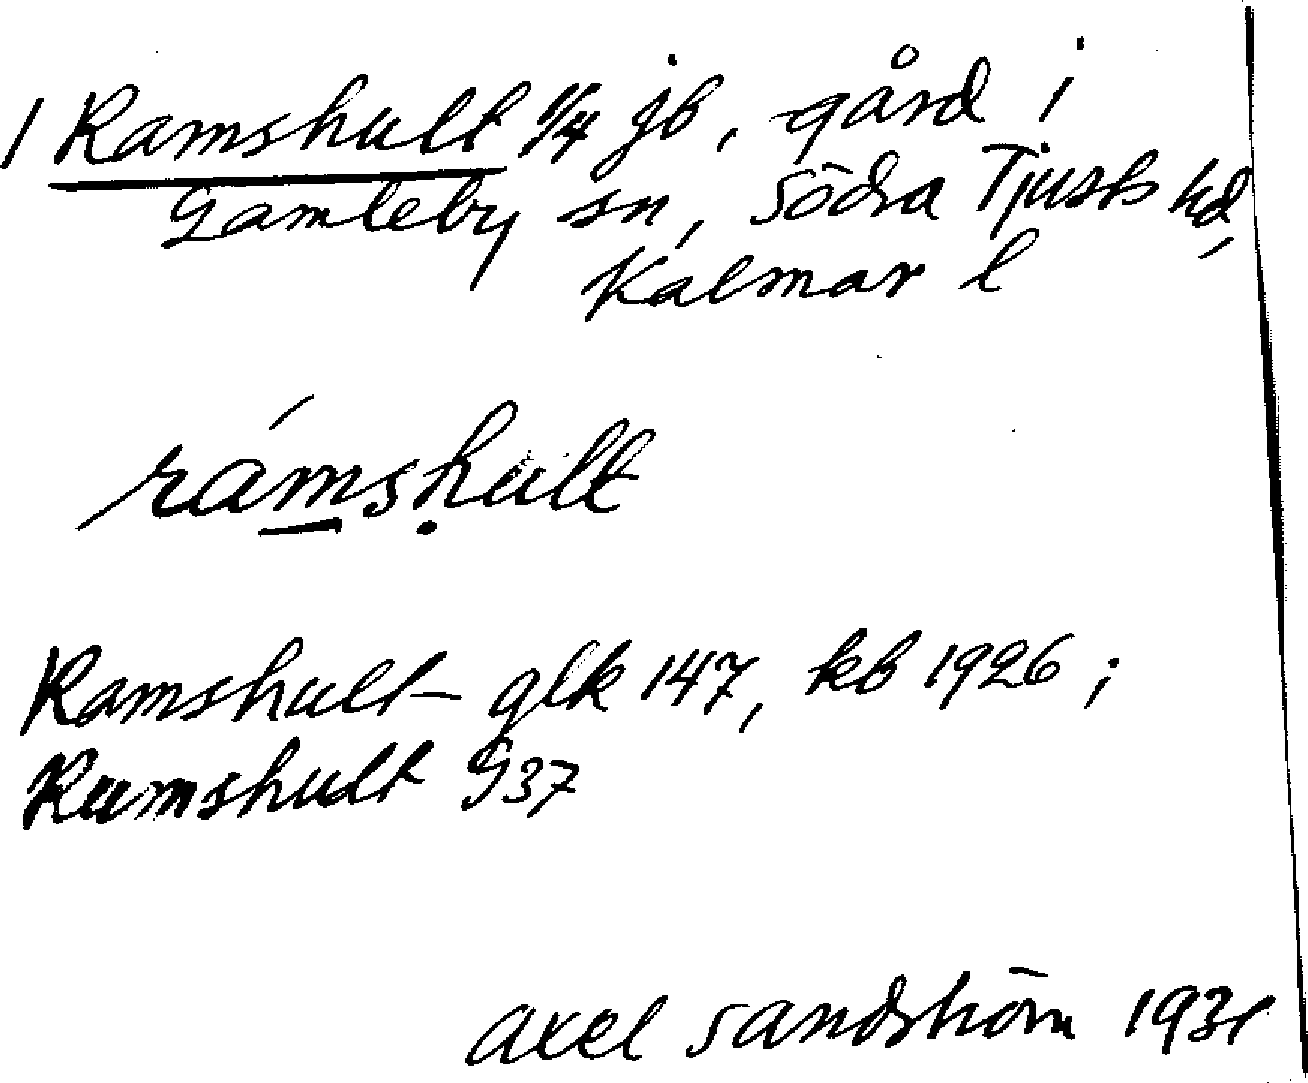 1 Ramshult 1/4 jb, gård i
Gamleby sn, Södra Tjusts hd,
Kalmar l
rámshult
Ramshult glk 147, kb 1926;
Ramshult G37
Axel Sandström 1931